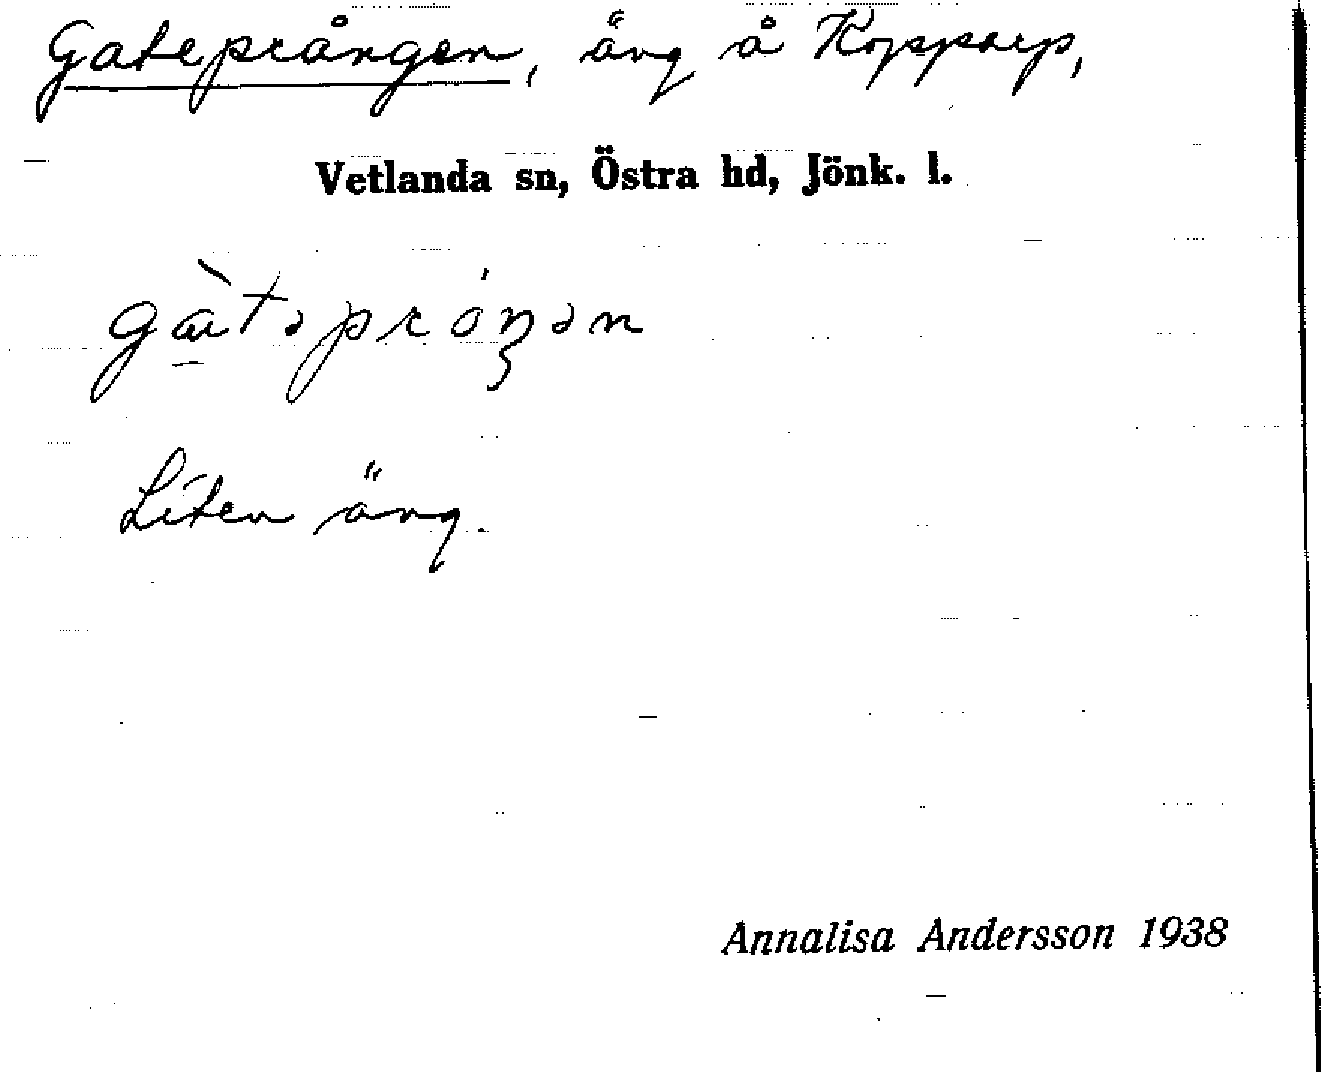 Gateprången, äng å Kopparp,
Vetlanda sn, Östra hd, Jönk. l.
gàtəpróŋən
Liten äng.
Annalisa Andersson 1938